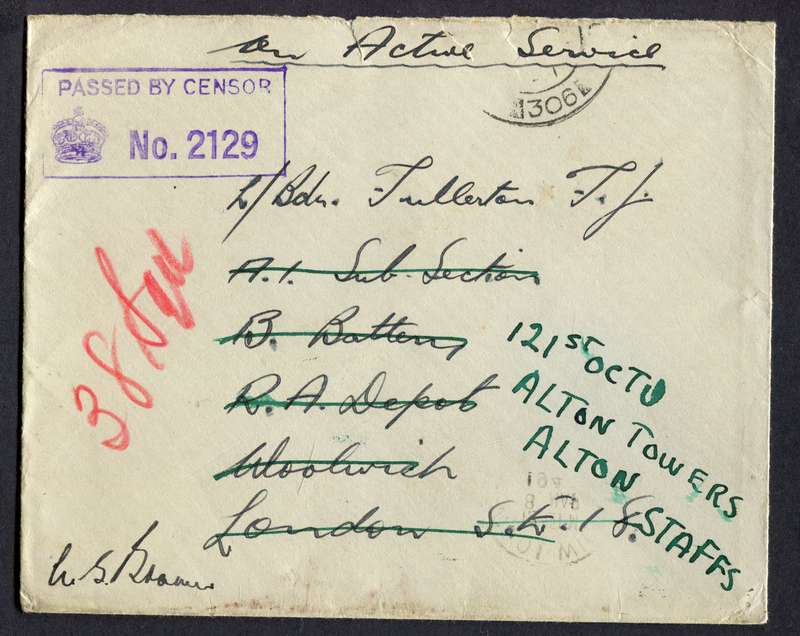 On Active Service
PASSED BY CENSOR
No. 2129
306
L/Bdr. Fullerton F. J.
A.1. Sub. Section
B. Battery
R.A. Depot
Woolwich
London S.E.18.
121ST OCTU
ALTON TOWERS
ALTON
STAFFS
38